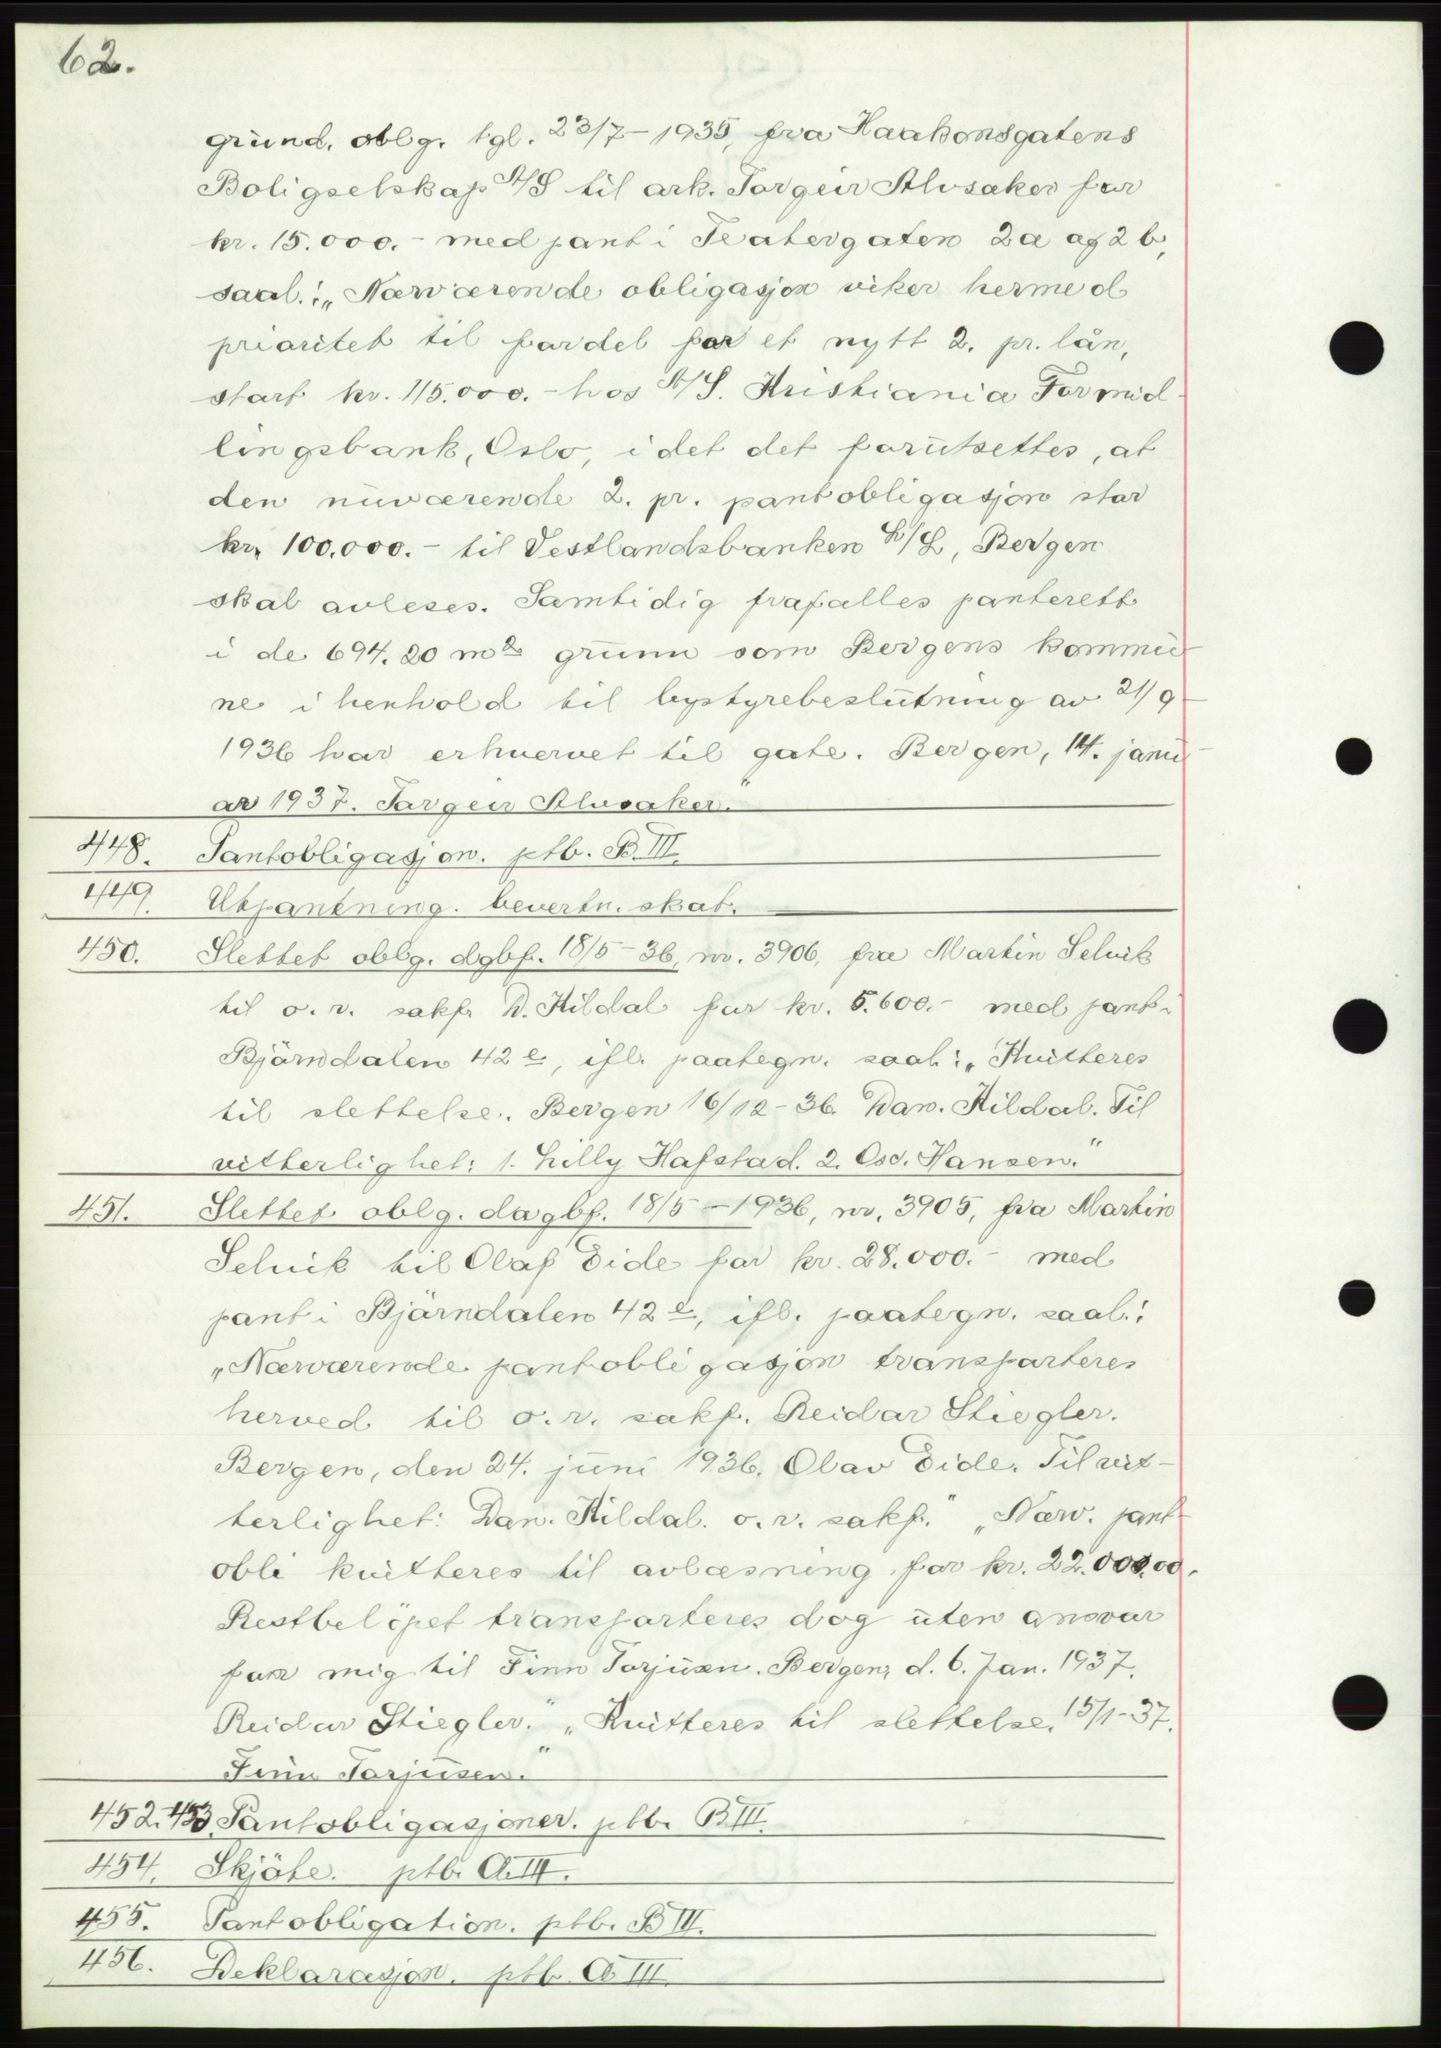 62.
grund. oblg. tgl. 23/7-1935, fra Haakonsgatens
Boligselskap A/S til ark. Torgeir Alvsaker for
kr. 15.000.- med pant i Teatergaten 2a og 2b,
saal.: „Nærværende obligasjon viker hermed
prioritet til fordel for et nytt 2. pr. lån,
stort kr. 115.000.- hos A/S. Kristiania Formid-
lingsbank, Oslo, idet det forutsettes, at
den nuværende 2. pr. pantobligasjon stor
kr. 100.000.- til Vestlandsbanken L/L, Bergen
skal avleses. Samtidig frafalles panterett
i de 694.20 m2 grunn som Bergens kommu-
ne i henhold til bystyrebeslutning av 21/9-
1936 har erhvervet til gate. Bergen, 14. janu-
ar 1937. Torgeir Alvsaker."
448. Pantobligasjon. ptb. B.III.
449. Utpantning. bevertn. skat.
450. Slettet oblg. dgbf. 18/5-36, nr. 3906, fra Martin Selvik
til o. r. sakf. D. Kildal for kr. 5.600.- med pant i
Bjärndalen 42 e, ifl. paategn. saal.: „Kvitteres
til slettelse. Bergen 16/12-36. Dan. Kildal. Til
vitterlighet: 1. Lilly Hafstad. 2. Osc. Hansen."
451. Slettet oblg. dagbf. 18/5-1936, nr. 3905, fra Martin
Selvik til Olaf Eide for kr. 28.000.- med
pant i Bjärndalen 42 e, ifl. paategn. saal.:
„Nærværende pantobligasjon transporteres
herved til o. r. sakf. Reidar Stiegler.
Bergen, den 24. juni 1936. Olav Eide. Til vit-
terlighet: Dan. Kildal. o. r. sakf." „Nærv. pant-
obli kvitteres til avlæsning for kr. 22.000.00.
Restbelöpet transporteres dog uten ansvar
for mig til Finn Torjusen. Bergen, d. 6. Jan. 1937.
Reidar Stiegler." „Kvitteres til slettelse. 15/1-37.
Finn Torjusen."
452.-453. Pantobligasjoner. ptb. B III.
454. Skjöte. ptb. A. III.
455. Pantobligation. ptb. B III.
456. Deklarasjon. ptb. A III.